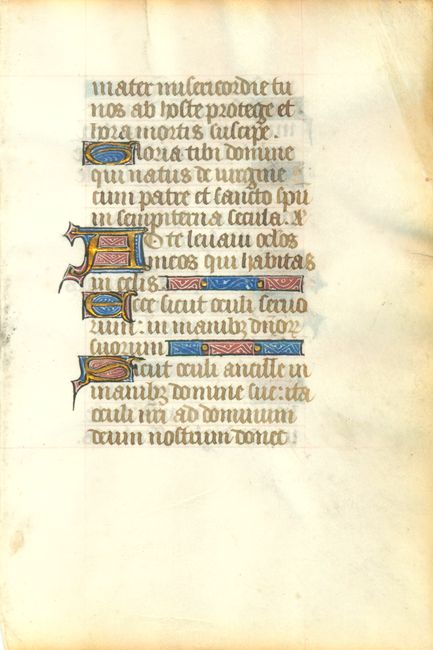 mater misericordie tu
nos ab hoste protege et
hora mortis suscipe.
Gloria tibi domine
qui natus de virgine
cum patre et sancto spu
in sempiterna secula. A
Ad te levavi oclos
meos qui habitas
in celis.
Ecce sicut oculi servo
rum: in manibꝫ dnor
suorum
Sicut oculi ancille in
manibꝫ domine sue: ita
oculi nri ad dominum
deum nostrum donec